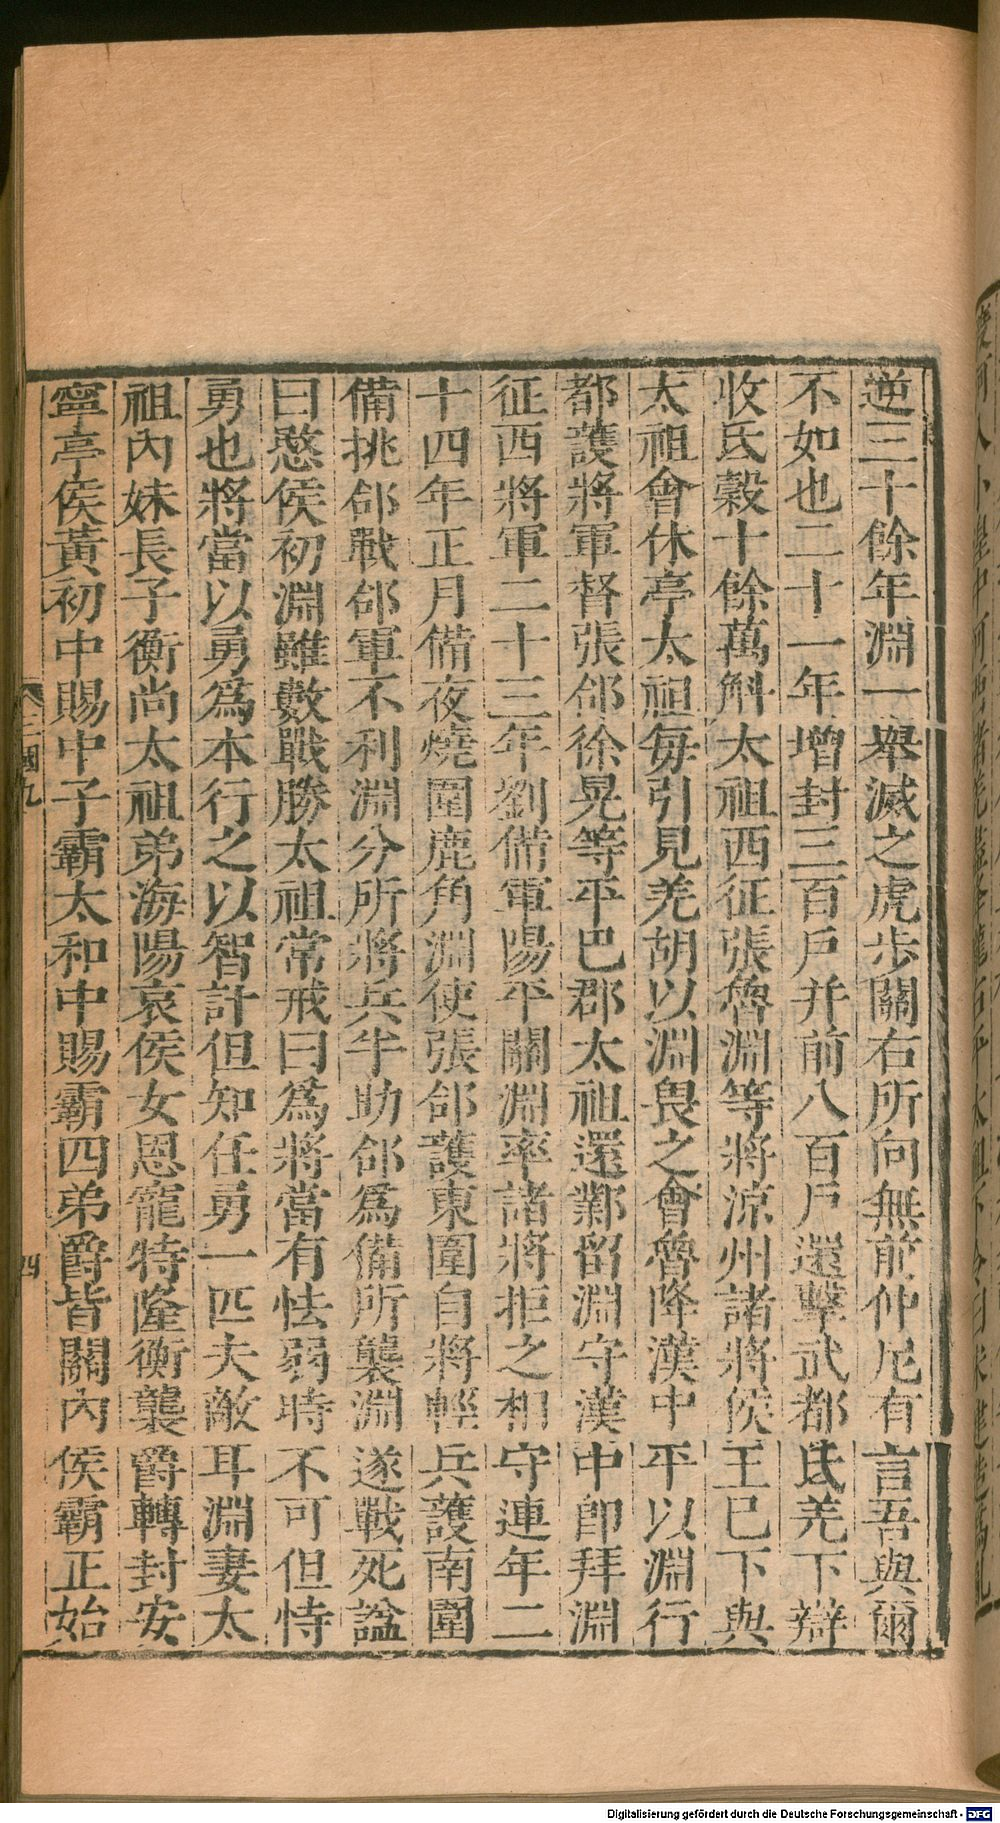 逆三十餘年淵一舉滅之虎步關右所向無前仲尼有言吾與爾
不如也二十一年增封三百戶并前八百戶還擊武都氐羌下辯
收氐穀十餘萬斛太祖西征張魯淵等將涼州諸將侯王已下與
太祖會休亭太祖每引見羌胡以淵畏之會魯降漢中平以淵行
都護將軍督張郃徐晃等平巴郡太祖還鄴留淵守漢中卽拜淵
征西將軍二十三年劉備軍陽平關淵率諸將拒之相守連年二
十四年正月備夜燒圍鹿角淵使張郃護東圍自將輕兵護南圍
備挑郃戰郃軍不利淵分所將兵半助郃爲備所襲淵遂戰死謚
曰愍侯初淵雖數戰勝太祖常戒曰爲將當有怯弱時不可但恃
勇也將當以勇爲本行之以智計但知任勇一匹夫敵耳淵妻太
祖內妹長子衡尚太祖弟海陽哀侯女恩寵特隆衡襲爵轉封安
寧亭侯黃初中賜中子霸太和中賜霸四弟爵皆關內侯霸正始
三國九
四
Digitalisierung gefördert durch die Deutsche Forschungsgemeinschaft - DFG